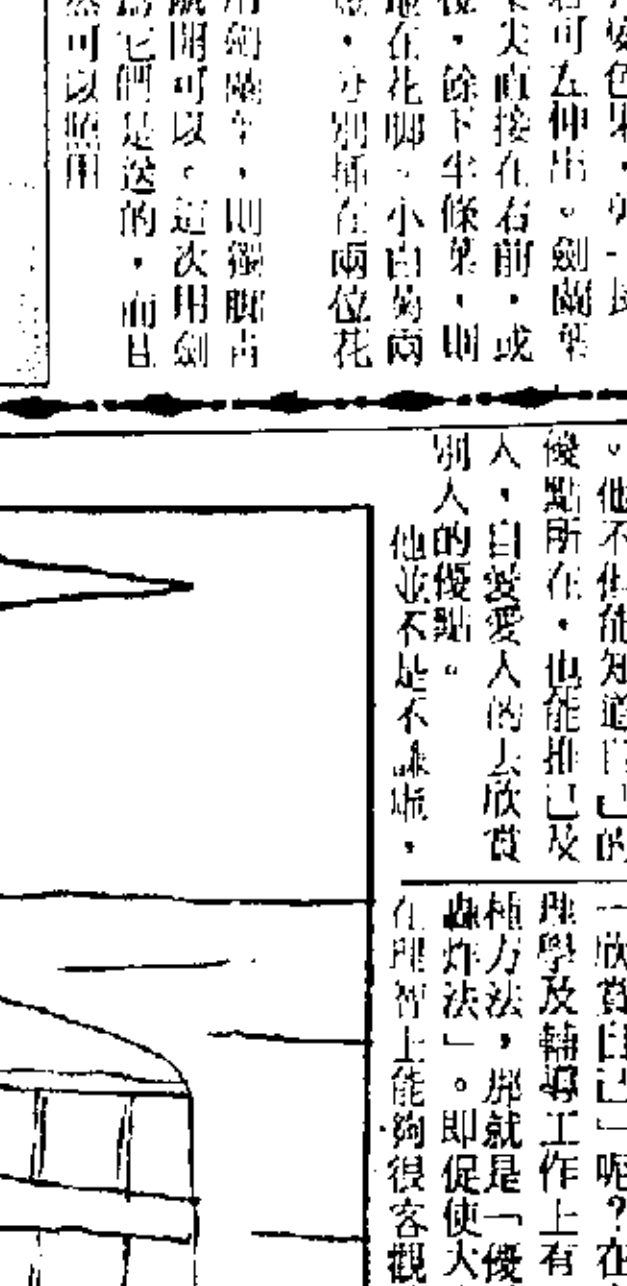 可左伸出。劍蘭葉
尖直接在右前,或
,餘下半條葉,則
地在花脚。小白菊兩
,分別插在兩位花
用劍蘭葉,則獨脚古
開可以。這次用劍
它們是送的,而且
然可以照用
。他不但能知道自己的
優點所在,也能推己及
人,自愛愛人的去欣賞
別人的優點。
他並不是不謙虛,
「欣賞自己」呢?在
理學及輔導工作上有
種方法,那就是「優
轟炸法」。即促使大
在理智上能夠很客觀